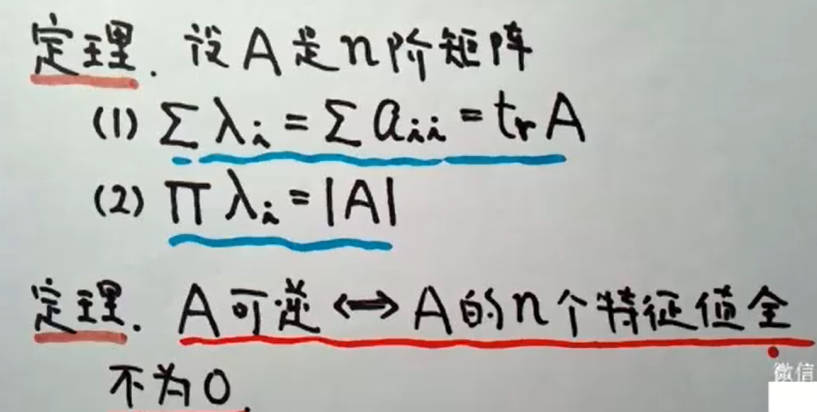 定理. 设A是n阶矩阵
(1) ∑λi = ∑aii = trA
(2) ∏λi = |A|
定理. A可逆 ⟺ A的n个特征值全
不为0.
微信